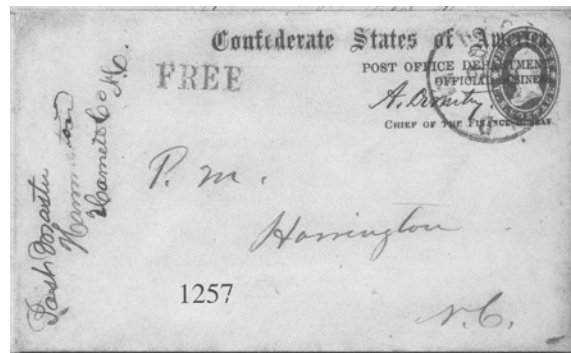 Confederate States of America
POST OFFICE DEPARTMENT
OFFICIAL BUSINESS
FREE
A. Dimitry.
CHIEF OF THE FINANCE BUREAU
P. M.
Harrington
N.C.
1257
Post Master
Harrington
Harnett Co N.C.